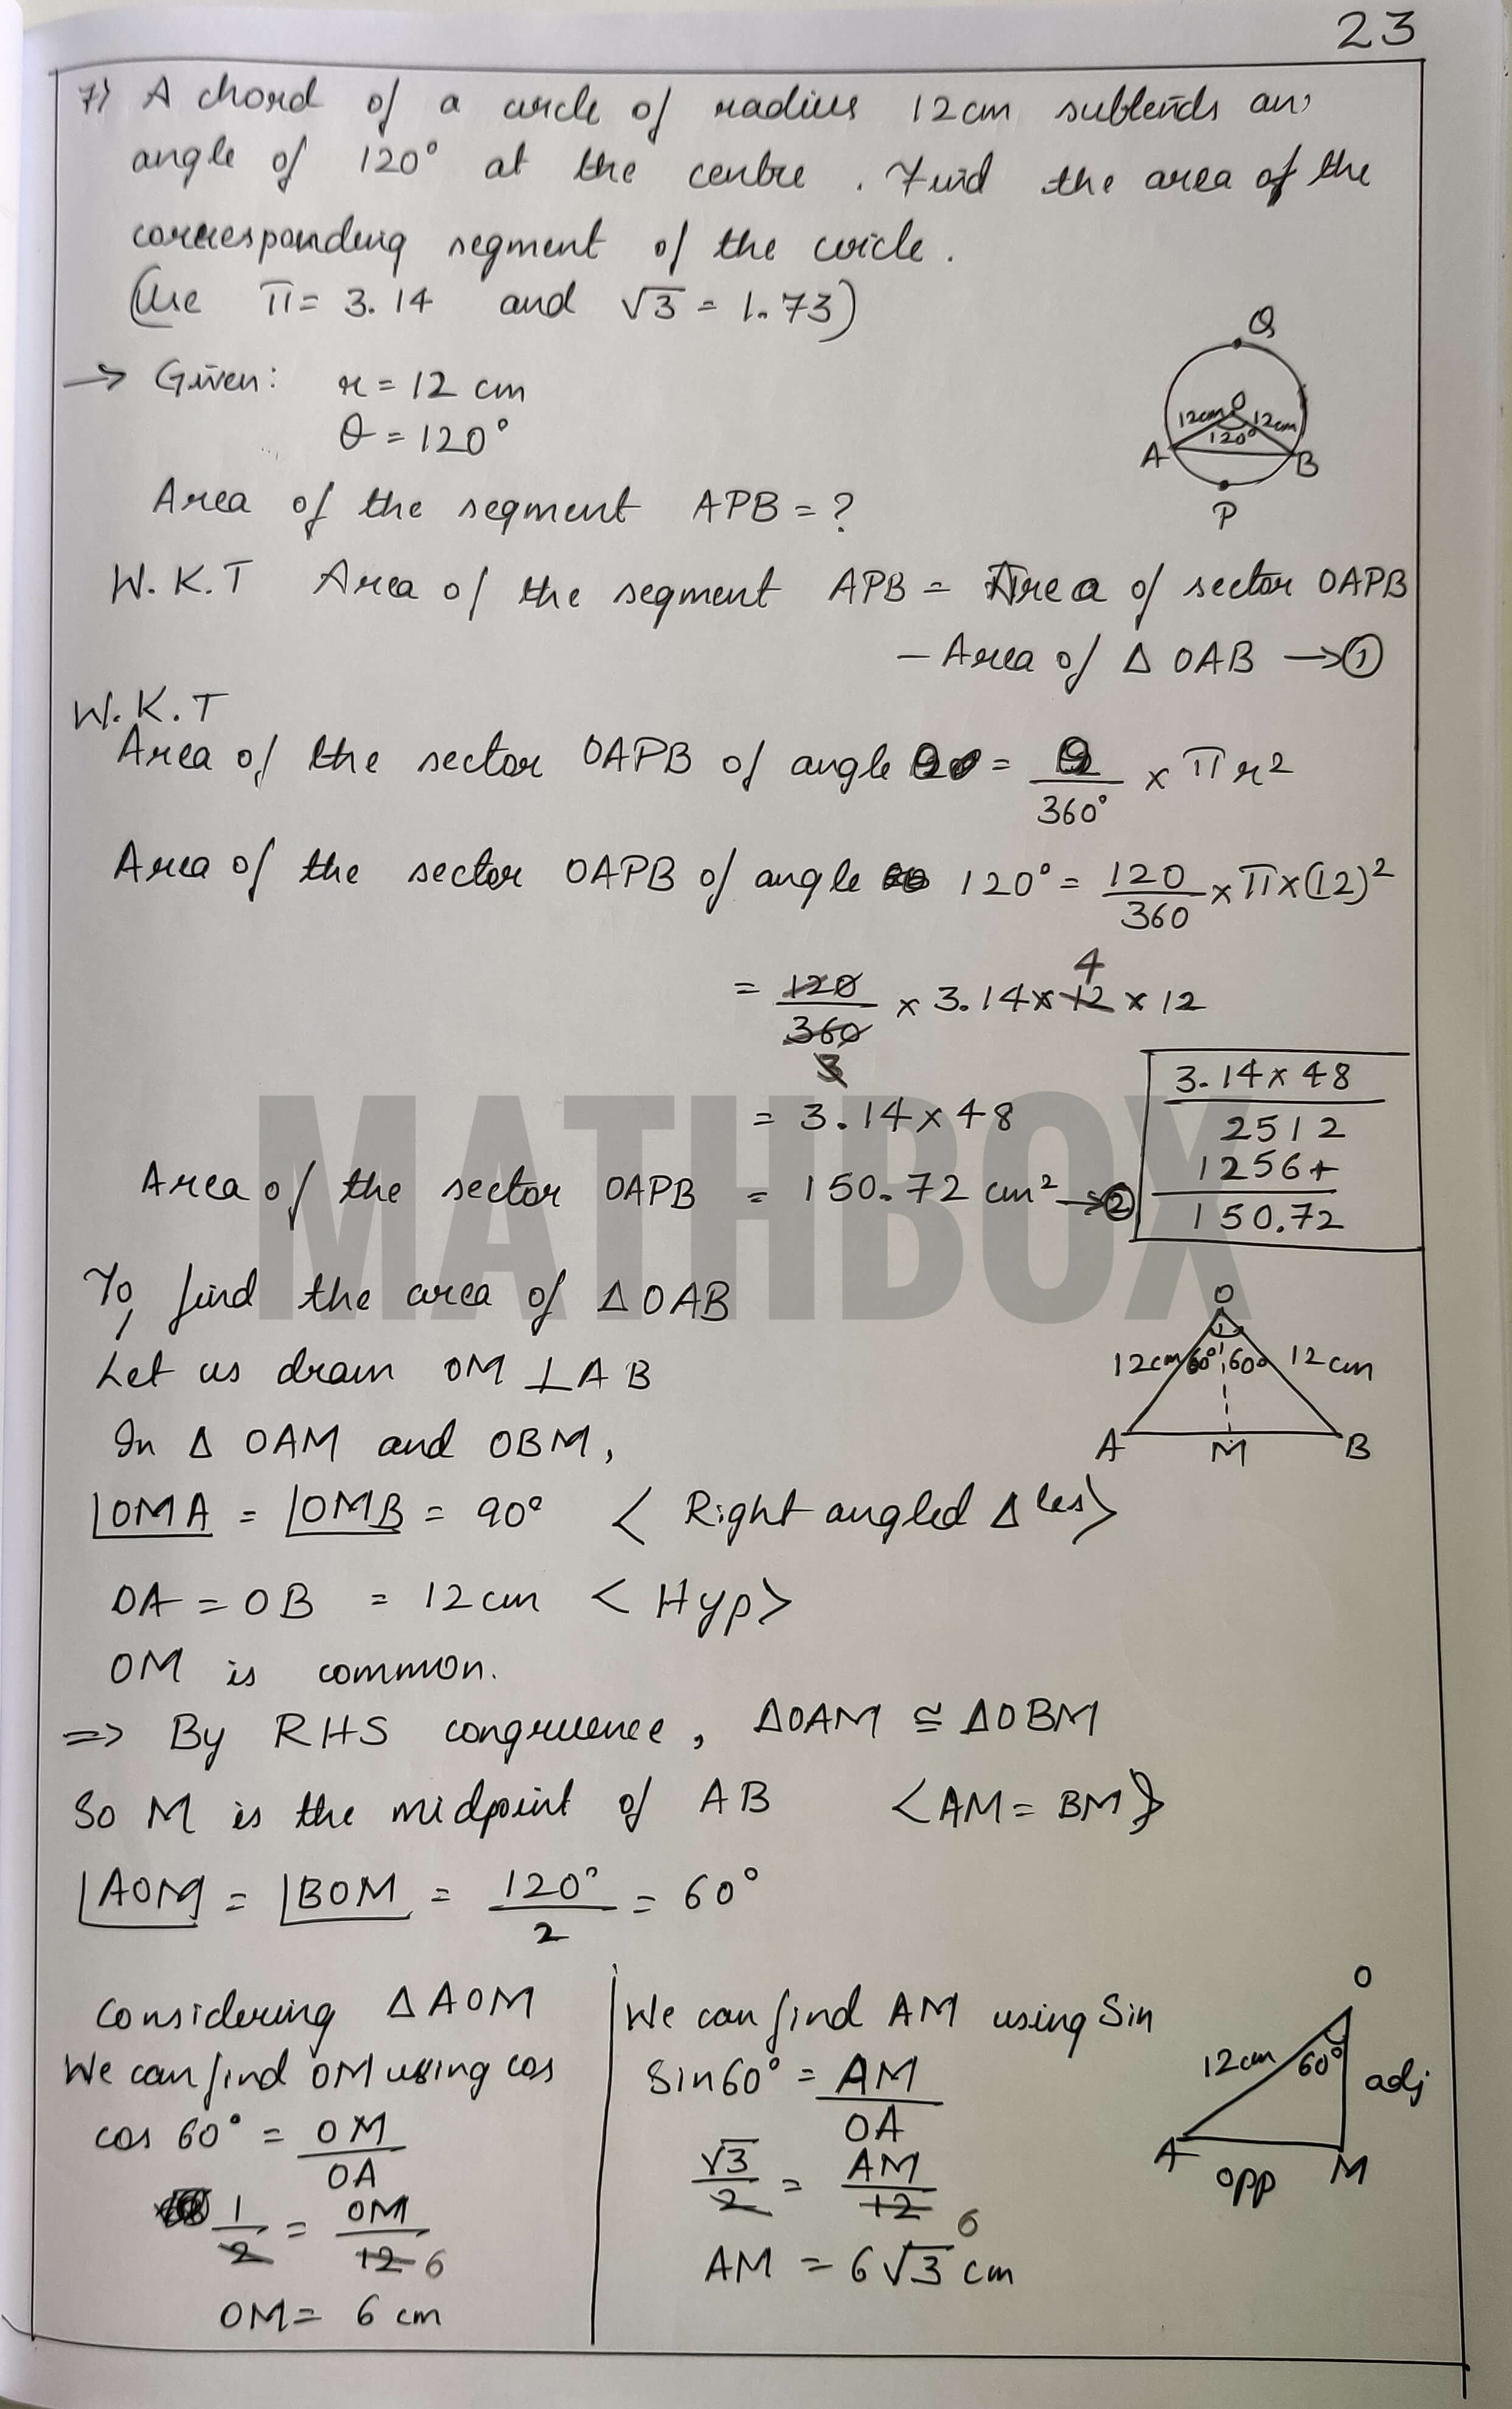 23
7) A chord of a circle of radius 12cm subtends an
angle of 120° at the centre. Find the area of the
corresponding segment of the circle.
(Use π = 3.14 and √3 = 1.73)
→ Given: r = 12 cm
θ = 120°
Q
O
12cm 12cm
120°
A B
P
Area of the segment APB = ?
W.K.T Area of the segment APB = Area of sector OAPB
– Area of Δ OAB → ①
W.K.T
Area of the sector OAPB of angle θ = θ/360° × πr²
Area of the sector OAPB of angle 120° = 120/360 × π×(12)²
4
= 120/360 × 3.14 × 12 × 12
3
= 3.14 × 48
Area of the sector OAPB = 150.72 cm² → ②
3.14 × 48
2512
1256+
150.72
MATHBOX
To find the area of ΔOAB
Let us draw OM ⊥ AB
In Δ OAM and OBM,
O
12cm 60° 60° 12cm
A M B
∠OMA = ∠OMB = 90° < Right angled Δles>
OA = OB = 12cm < Hyp>
OM is common.
=> By RHS congruence, ΔOAM ≅ ΔOBM
So M is the midpoint of AB <AM = BM>
∠AOM = ∠BOM = 120°/2 = 60°
Considering ΔAOM
We can find OM using cos
cos 60° = OM/OA
1/2 = OM/12 6
OM = 6 cm
We can find AM using Sin
Sin60° = AM/OA
√3/2 = AM/12 6
AM = 6√3 cm
O
12cm 60° adj
A opp M